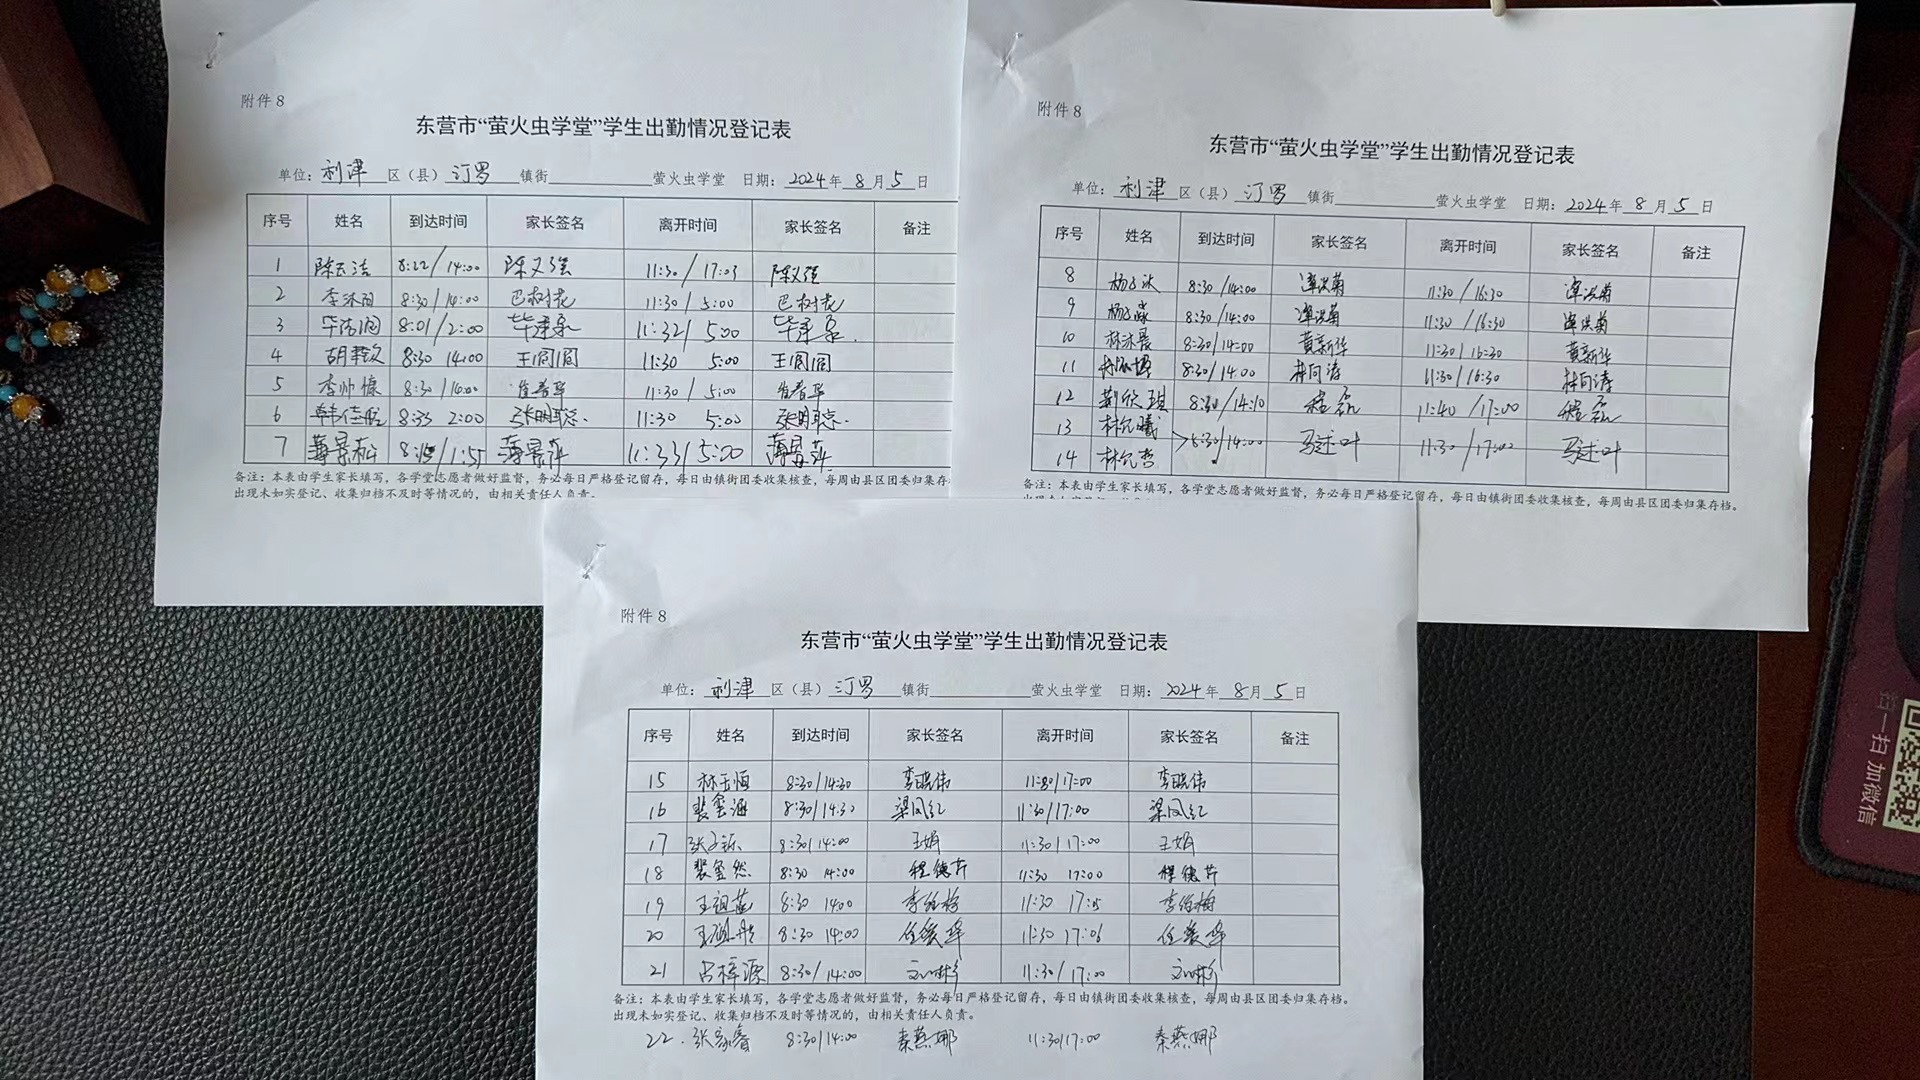 附件 8
东营市“萤火虫学堂”学生出勤情况登记表
单位: 利津 区（县） 汀罗 镇街 萤火虫学堂 日期: 2024 年 8 月 5 日
序号 姓名 到达时间 家长签名 离开时间 家长签名 备注
1 8:22/14:00 11:30/17:03
2 8:30/14:00 巴树花 11:30/5:00 巴树花
3 8:01/2:00 11:32/5:00
4 8:30 14:00 王阎阎 11:30 5:00 王阎阎
5 8:30/14:00 崔春华 11:30/5:00 崔春华
6 8:33 2:00 张明聪 11:30 5:00 张明聪
7 1:55 11:33/5:00
备注：本表由学生家长填写，各学堂志愿者做好监督，务必每日严格登记留存，每日由镇街团委收集核查，每周由县区团委归集存
出现未如实登记、收集归档不及时等情况的，由相关责任人负责。
附件 8
东营市“萤火虫学堂”学生出勤情况登记表
单位: 利津 区（县） 汀罗 镇街 萤火虫学堂 日期: 2024 年 8 月 5 日
序号 姓名 到达时间 家长签名 离开时间 家长签名 备注
8 8:30/14:00 谭洪菊 11:30/16:30 谭洪菊
9 8:30/14:00 谭洪菊 11:30/16:30 谭洪菊
10 林沐晨 8:30/14:00 黄新华 11:30/16:30 黄新华
11 8:30/14:00 林向涛 11:30/16:30 林向涛
12 8:30/14:10 程磊 11:40/17:00 程磊
13 林允曦 8:30/14:00 马述叶 11:30/17:00 马述叶
14 林允哲
备注：本表由学生家长填写，各学堂志愿者做好监督，务必每日严格登记留存，每日由镇街团委收集核查，每周由县区团委归集存档。
附件 8
东营市“萤火虫学堂”学生出勤情况登记表
单位: 利津 区（县） 汀罗 镇街 萤火虫学堂 日期: 2024 年 8 月 5 日
序号 姓名 到达时间 家长签名 离开时间 家长签名 备注
15 林玉恒 8:30/14:30 李晓伟 11:30/17:00 李晓伟
16 8:30/14:30 梁凤红 11:30/17:00 梁凤红
17 8:30/14:00 王娟 11:30/17:00 王娟
18 裴玺然 8:30 14:00 程德芹 11:30 17:00 程德芹
19 8:30 14:00 李绍梅 11:30 17:05 李绍梅
20 8:30 14:00 任爱华 11:30 17:06 任爱华
21 吕梓源 8:30/14:00 刘彬彬 11:30/17:00 刘彬彬
备注：本表由学生家长填写，各学堂志愿者做好监督，务必每日严格登记留存，每日由镇街团委收集核查，每周由县区团委归集存档。
出现未如实登记、收集归档不及时等情况的，由相关责任人负责。
22. 张家睿 8:30/14:00 秦燕娜 11:30/17:00 秦燕娜
扫一扫 加微信